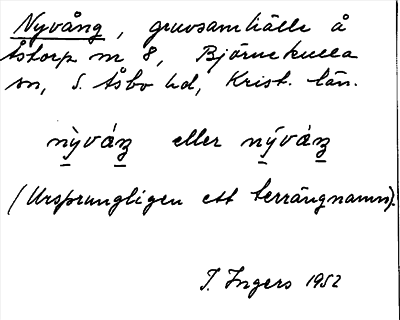 Nyvång, gruvsamhälle å
Åstorp m 8, Björnekulla
sn, S. Åsbo hd, Krist. län.
nỳváŋ eller nýváŋ
(Ursprungligen ett terrängnamn).
I. Ingers 1952